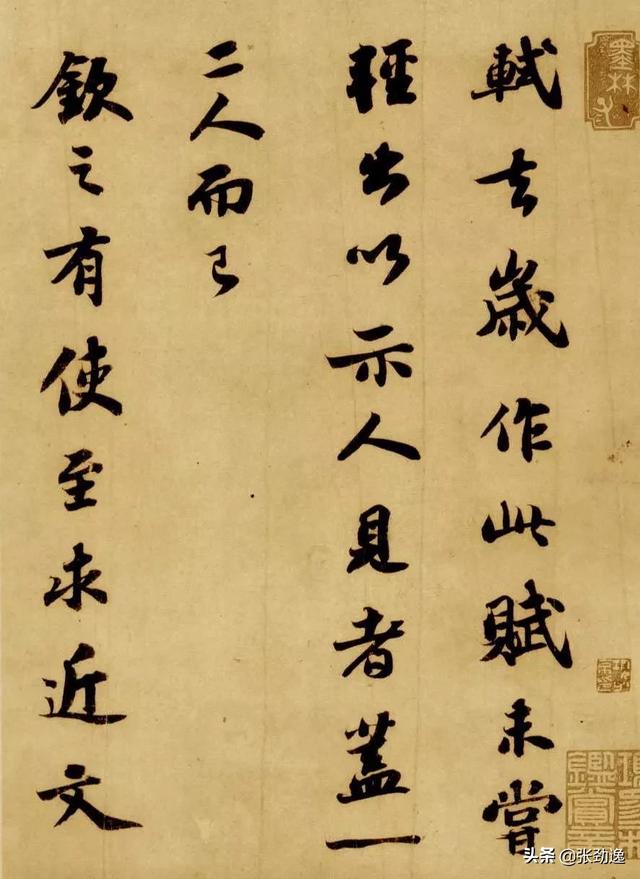 軾去歲作此賦未嘗
輕出以示人見者蓋一
二人而已
欽之有使至求近文
墨林
頭条 @张劲逸